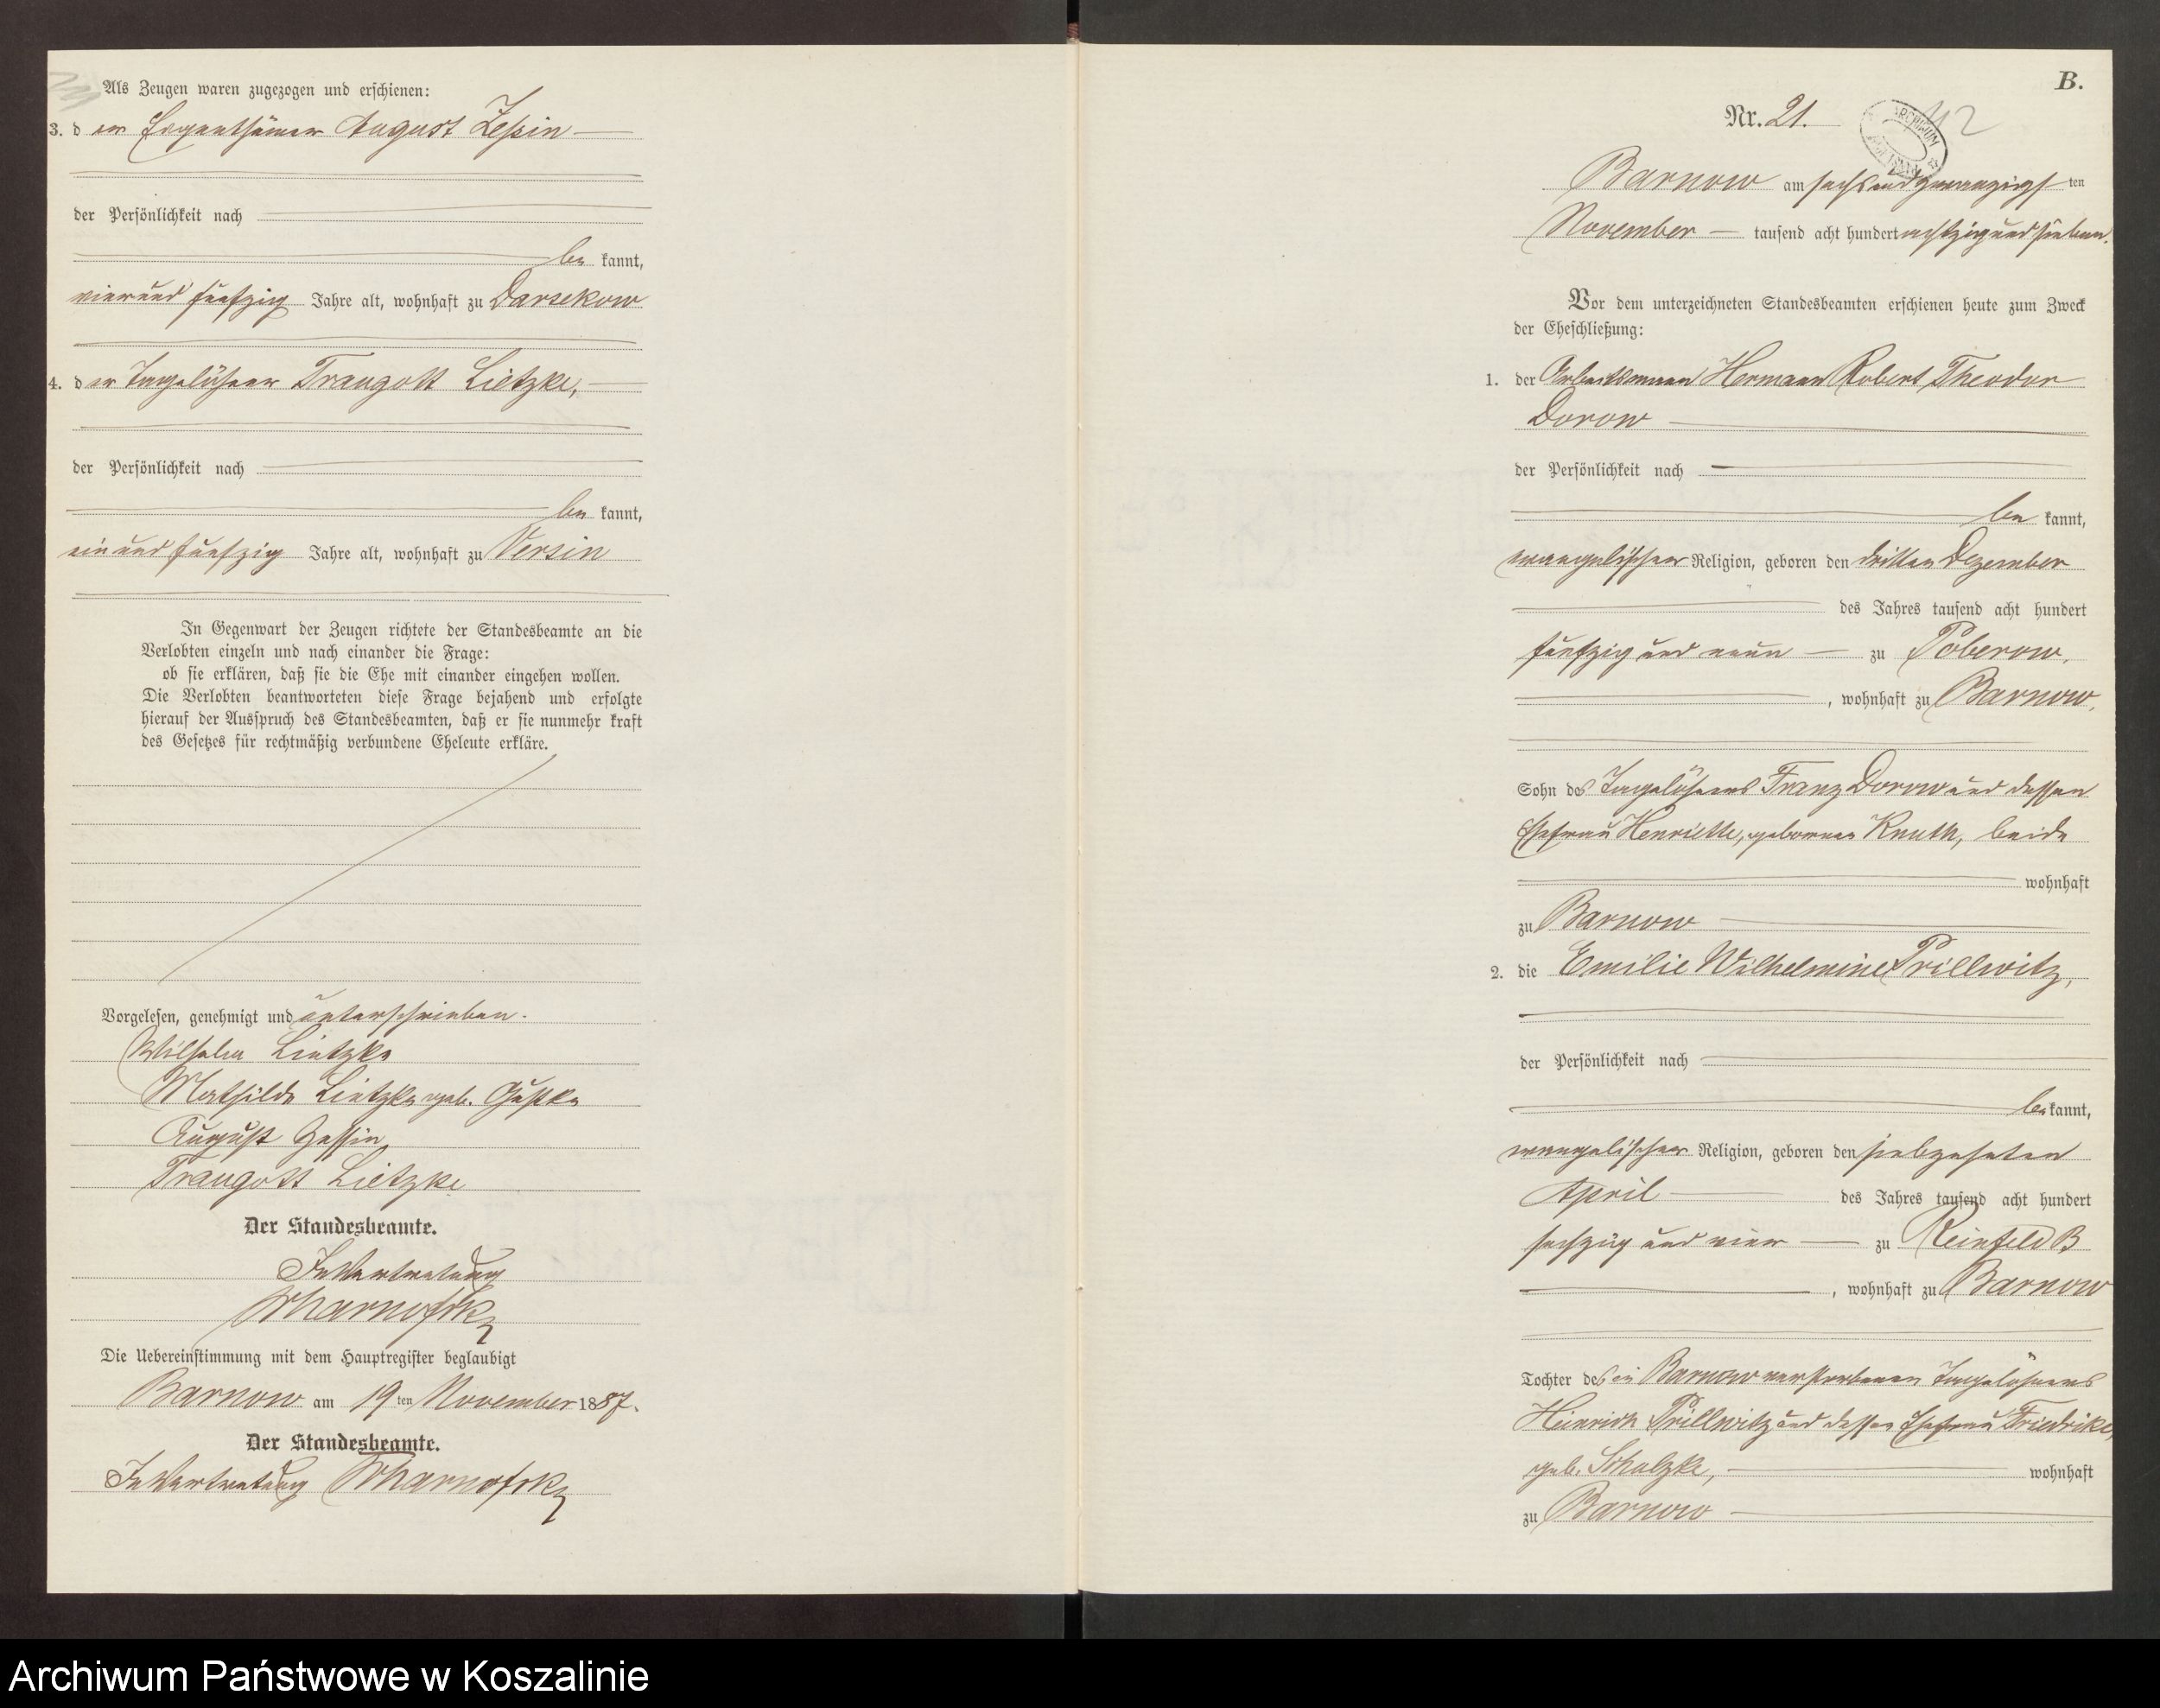 Als Zeugen waren zugezogen und erschienen:
3. der Eigenthümer August Zessin
der Persönlichkeit nach
be kannt,
vier und fünfzig Jahre alt, wohnhaft zu Darsekow
4. der Tagelöhner Traugott Lietzke,
der Persönlichkeit nach
be kannt,
ein und fünfzig Jahre alt, wohnhaft zu Versin
In Gegenwart der Zeugen richtete der Standesbeamte an die
Verlobten einzeln und nach einander die Frage:
ob sie erklären, daß sie die Ehe mit einander eingehen wollen.
Die Verlobten beantworteten diese Frage bejahend und erfolgte
hierauf der Ausspruch des Standesbeamten, daß er sie nunmehr kraft
des Gesetzes für rechtmäßig verbundene Eheleute erkläre.
Vorgelesen, genehmigt und unterschrieben.
Wilhelm Lietzke
Mathilde Lietzke geb.
August Zessin
Traugott Lietzke
Der Standesbeamte.
In Vertretung
Die Uebereinstimmung mit dem Hauptregister beglaubigt
Barnow am 19 ten November 1887.
Der Standesbeamte.
In Vertretung
B.
Nr. 21.
42
ARCHIWUM
Barnow am sechs und zwanzigsten
November tausend acht hundert achtzig und sieben.
Vor dem unterzeichneten Standesbeamten erschienen heute zum Zweck
der Eheschließung:
1. der Arbeitsmann Hermann Robert Theodor
Dorow
der Persönlichkeit nach
be kannt,
evangelischer Religion, geboren den dritten Dezember
des Jahres tausend acht hundert
fünfzig und neun zu Poberow,
, wohnhaft zu Barnow,
Sohn des Tagelöhners Franz Dorow und dessen
Ehefrau Henriette, geborenen Knuth, beide
wohnhaft
zu Barnow
2. die Emilie Wilhelmine Prillwitz,
der Persönlichkeit nach
be kannt,
evangelischer Religion, geboren den siebzehnten
April des Jahres tausend acht hundert
sechzig und vier zu Reinfeld B
, wohnhaft zu Barnow
Tochter des in Barnow verstorbenen Tagelöhners
Heinrich Prillwitz und dessen Ehefrau Friedrike,
geb. Schulzke, wohnhaft
zu Barnow
Archiwum Państwowe w Koszalinie